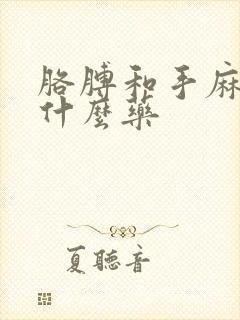 胳膊和手麻
什麼藥
夏聽音